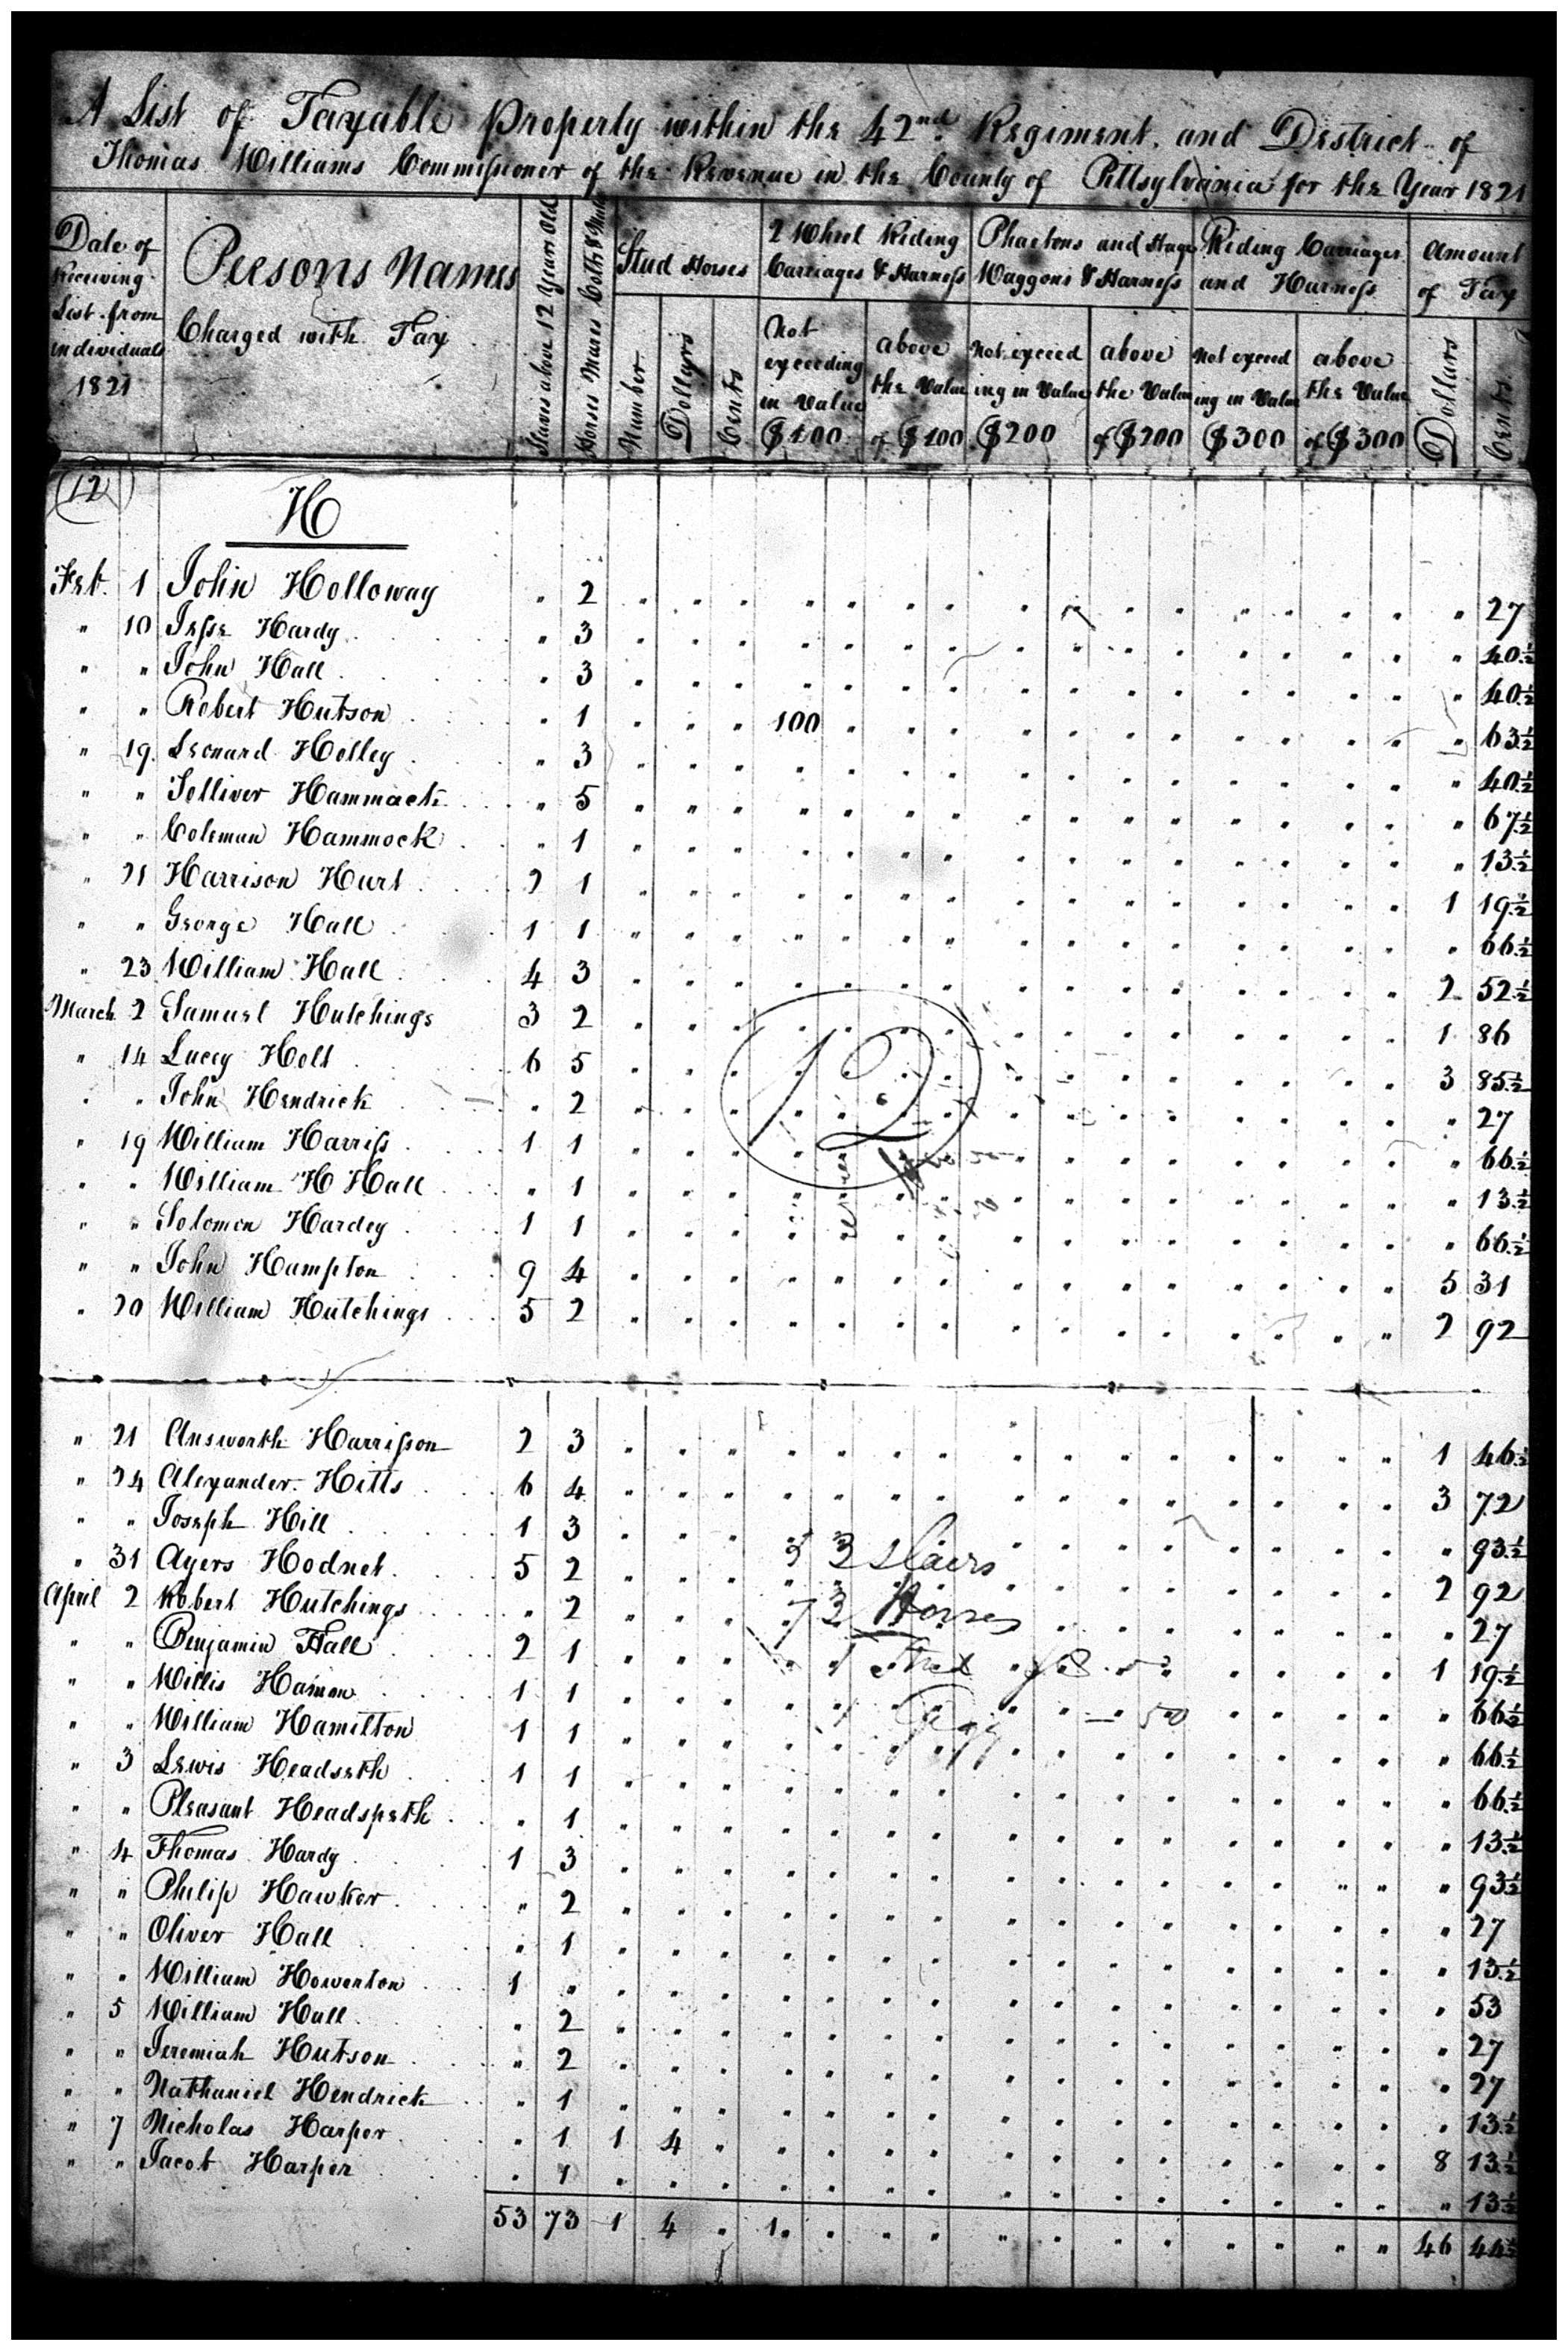 A List of Taxable Property within the 42nd Regiment, and District of
Thomas Williams Commissioner of the Revenue in the County of Pittsylvania for the Year 1821
Date of Receiving List from individuals 1821
Persons Names Charged with Tax
Slaves above 12 Years Old
Horses Mares Colts & Mules
Stud Horses
Number
Dollars
Cents
2 Wheel Riding Carriages & Harness
Not exceeding in Value $100
above the Value of $100
Phaetons and Stage Waggons & Harness
Not exceeding in Value $200
above the Value of $200
Riding Carriages and Harness
Not exceeding in Value $300
above the Value of $300
Amount of Tax
Dollars
Cents
12
H
Feb. 1 John Holloway " 2 " 27
" 10 Jesse Hardy " 3 " 40½
" " John Hall " 3 " 40½
" " Robert Hutson " 1 " " " 100 " 63½
" 19 Leonard Holley " 3 " 40½
" " Tolliver Hammack " 5 " 67½
" " Coleman Hammock " 1 " 13½
" 21 Harrison Hurt 2 1 1 19½
" " George Hall 1 1 " 66½
" 23 William Hall 4 3 2 52½
March 2 Samuel Hutchings 3 2 1 86
" 14 Lucey Holt 6 5 3 85½
" " John Hendrick " 2 " 27
" 19 William Harriss 1 1 " 66½
" " William H Hall " 1 " 13½
" " Solomon Hardey 1 1 " 66½
" " John Hampton 9 4 5 31
" 20 William Hutchings 5 2 2 92
12
" 21 Answorth Harrisson 2 3 1 46½
" 24 Alexander Hitts 6 4 3 72
" " Joseph Hill 1 3 " 93½
" 31 Ayers Hodnet 5 2 2 92
April 2 Robert Hutchings " 2 " 27
" " Benjamin Hall 2 1 1 19½
" " Willis Hamon 1 1 " 66½
" " William Hamilton 1 1 " 66½
" 3 Lewis Headseth 1 1 " 66½
" " Pleasant Headspeth " 1 " 13½
" 4 Thomas Hardy 1 3 " 93½
" " Philip Hawker " 2 " 27
" " Oliver Hall " 1 " 13½
" " William Howerton 1 " " 53
" 5 William Hall " 2 " 27
" " Jeremiah Hutson " 2 " 27
" " Nathaniel Hendrick " 1 " 13½
" 7 Nicholas Harper " 1 1 4 " 8 13½
" " Jacob Harper " 1 " 13½
53 73 1 4 " 1 46 44½
3 Horses
1 Gigg — 50